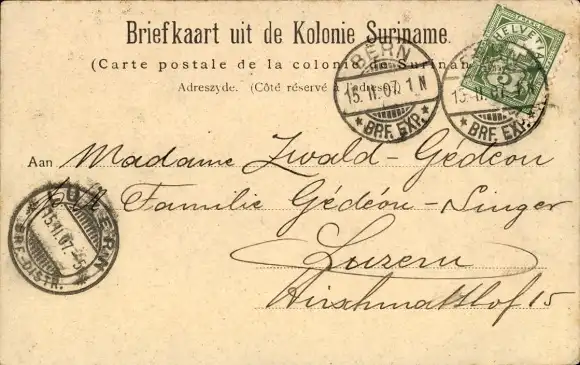 Briefkaart uit de Kolonie Suriname.
(Carte postale de la colonie de Suriname
Adreszyde. (Côté réservé à l'adresse)
HELVETIA
5
BERN
15.II.07. 1 N
* BRF. EXP. *
BRF. EXP. *
Aan Madame Zwald-Gédéon
Familie Gédéon-Singer
Luzern
Hirschmatthof 15
LUZERN
15.II.07.
BRF.-DISTR.